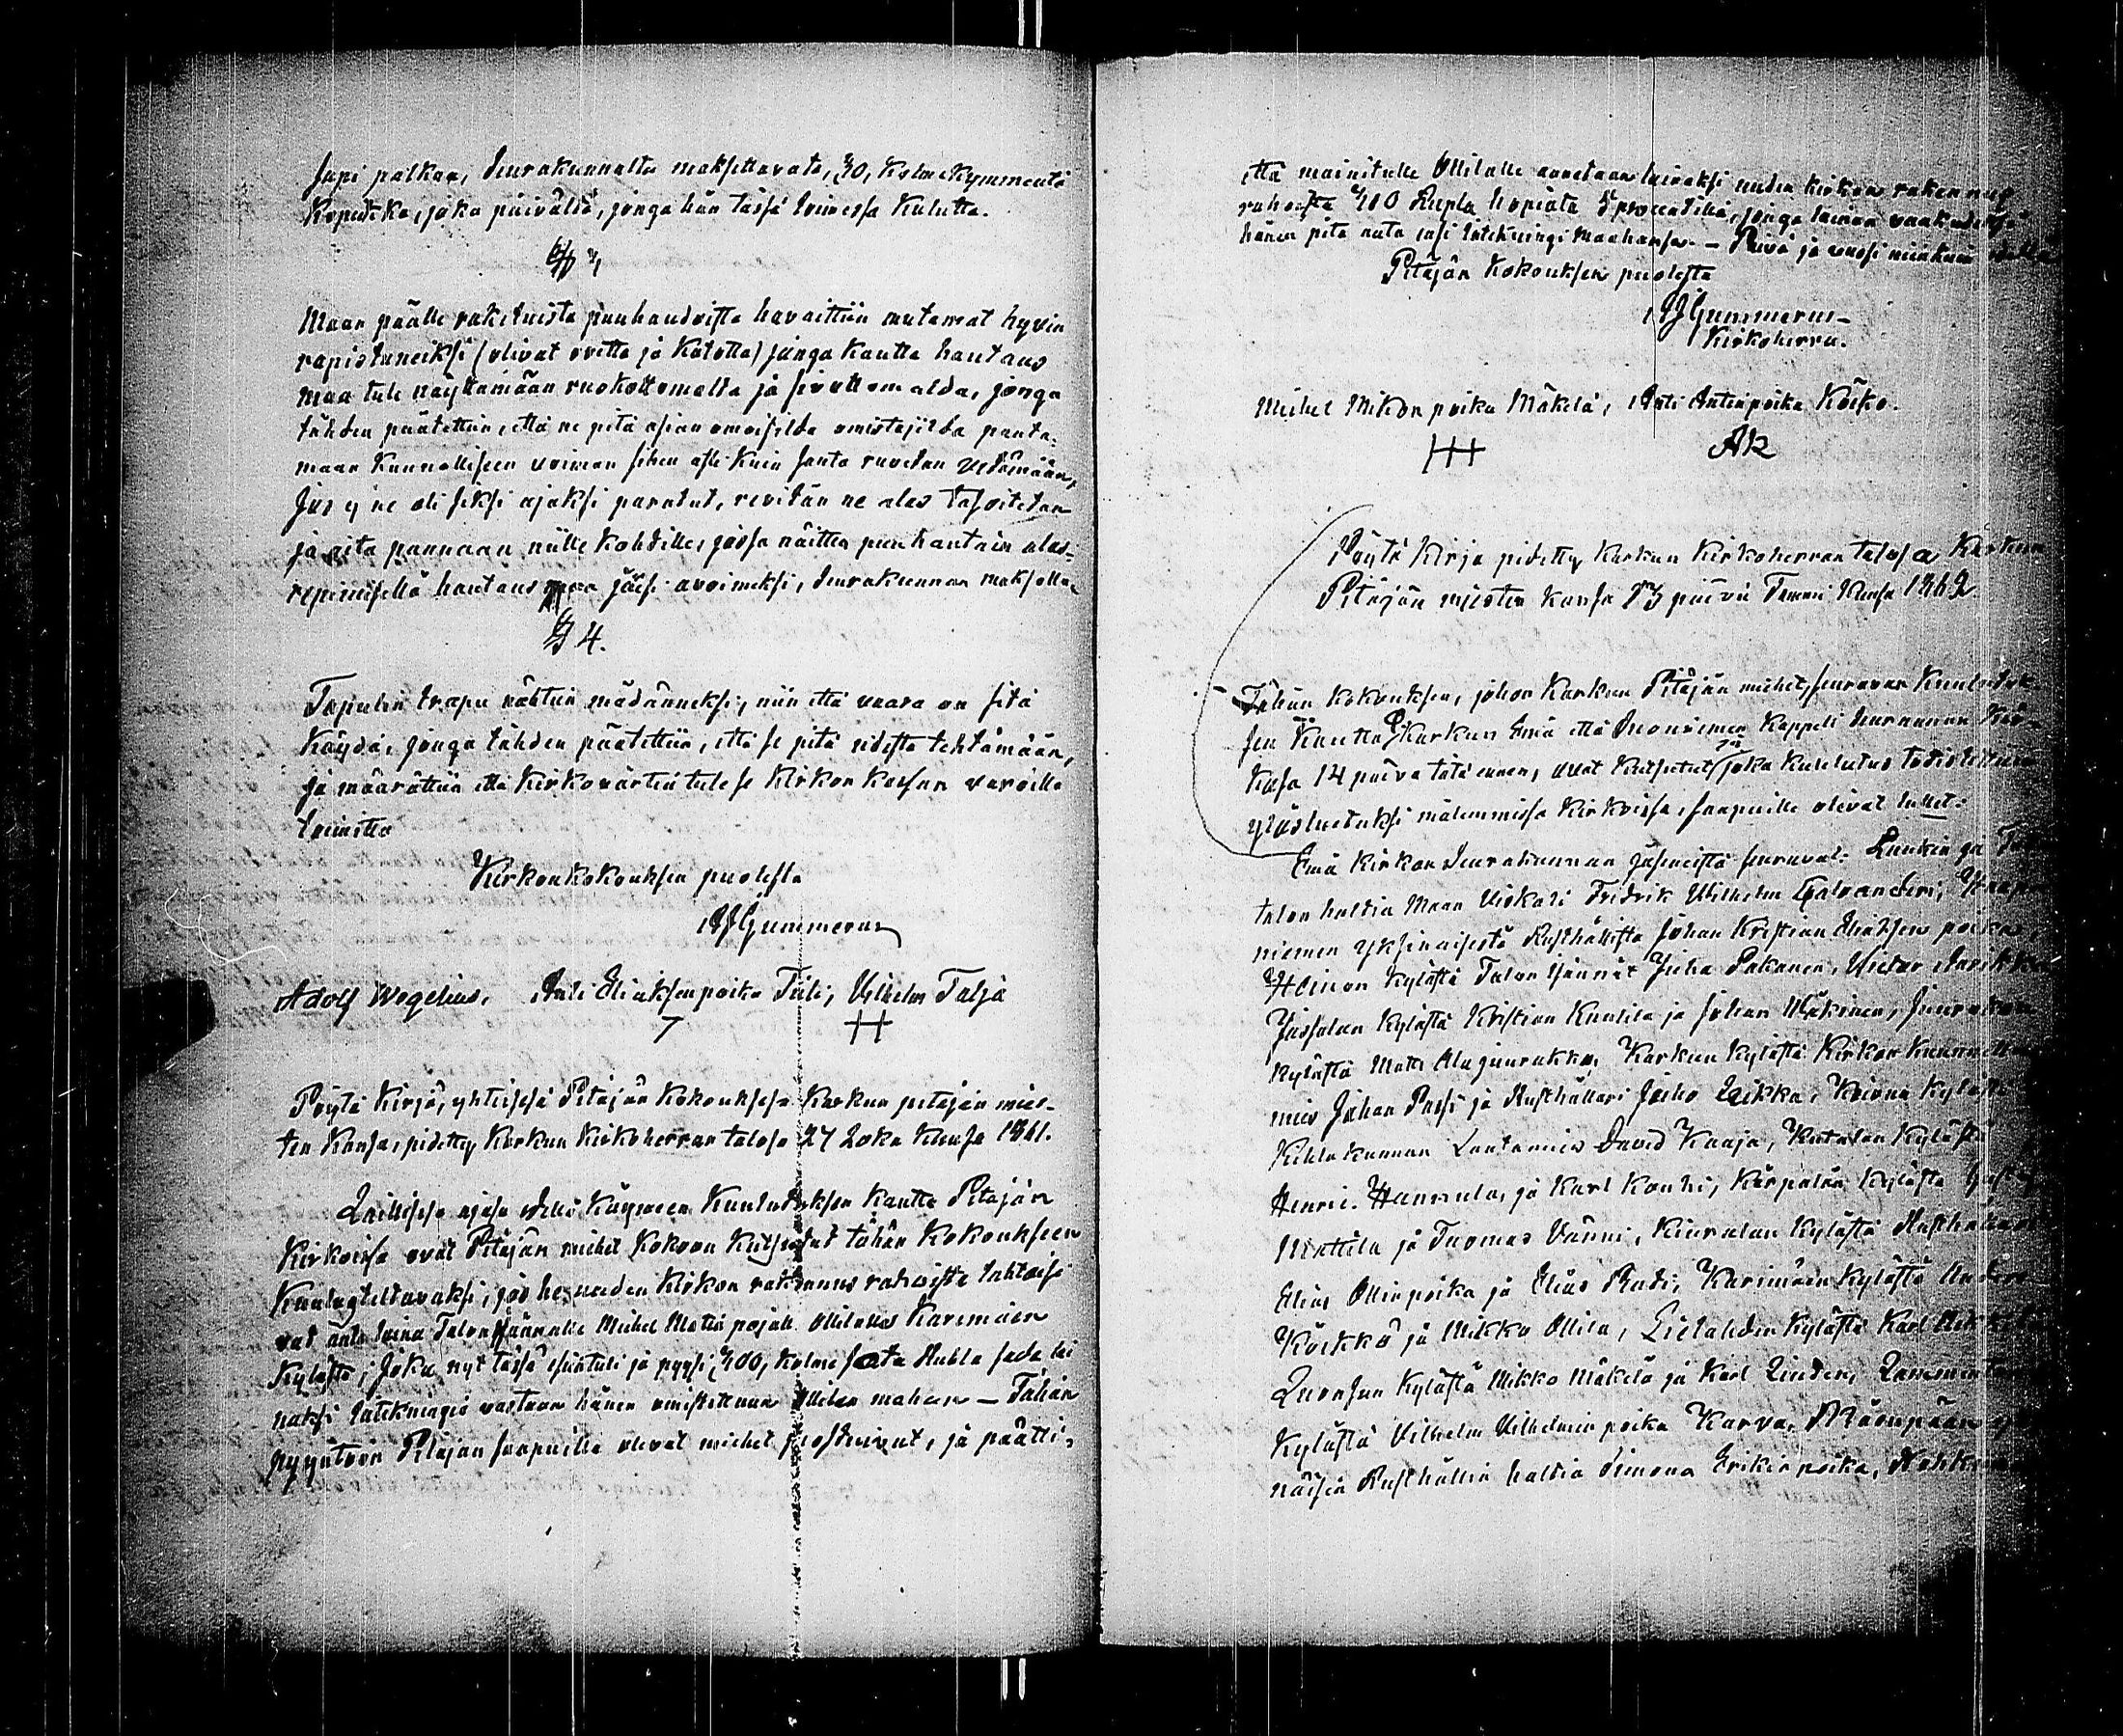 sapi palkan, Seurakunnalta maksettavata, 30, Kolmekymmentä
Kopeikka, joka päivältä, jonga hän tässä toimessa Kulutta.
§ 3
Maan päälle raketuista puuhaudoista havaittiin mutamat hyvin
rapistuneiksi (olivat ovitta ja Katotta) jonga kautta hautaus
maa tule näyttämään ruokottomalta ja sivuttomalda, jonga
tähden päätettiin, että ne pitä asian omaisilda omistajilda panta-
maan Kunnolliseen voiman sihen asti Kuin santa ruvetan vetämään,
Jos ej ne ole siksi ajaksi paratut, revitän ne alas tasoitetan
ja sita pannaan niille Kohdille, joisa näitten puuhautain alas-
repimisellä hautausmaa jäisi avoimeksi, Seurakunnan maksolla.
§ 4.
Tapulin trapu nähtiin mädänneksi, niin että vaara on sitä
Käydä, jonga tähden päätettiin, että se pitä uudesta tehtämään,
ja määrättiin että Kirkovärtin tule se Kirkon Kassan varoilla
toimitta
Kirkonkokouksen puolesta
A J Gummerus
Adolf Wegelius, Anti Eliaksenpoika Tuli, Vilhelm Talja
Pöytä Kirja, yhteisesä Pitäjän Kokouksesa Karkun pitäjän mies-
ten Kansa, pidetty Karkun Kirkoherran talosa 27 Loka Kuusa 1861.
Laillisesa ajasa edellä Käyneen Kuulutuksen Kautta Pitäjän
Kirkoissa ovat Pitäjän miehet Kokoon Kutsutut tähän Kokoukseen
Kuulusteltavaksi, jos he uuden Kirkon rakennus rahoista tahtoisi
vat anta laina Talon Isännälle Michel Matin pojalle Ollilalle Karimäen
Kylästä, Joka nyt tässä esiintuli ja pyysi 300, Kolme sata Rubla sada lai
naksi intekningiä vastaan hänen omistettuun Ollilan mahan – Tähän
pyyntöön Pitäjän saapuilla olevat miehet suostuivat, ja päätti,
että mainitulle Ollilalle annetaan lainaksi uuden kirkon rakennus
rahoista 300 Rupla hopiata 5 procentillä, jonga lainan vaakudeksi
hänen pitä anta ensi inteckningi maahansa. – Päivä ja vuosi niinkuin edellä
Pitäjän Kokouksen puolesta
A J Gummerus
Kirkoherra.
Michel Mikon poika Mäkelä, Anti Antinpoika Köikö.
AK
Pöytä Kirja pidetty Karkun Kirkoherran talosa Karkun
Pitäjän miesten kansa päivä Tammi Kuusa 1862.
Tähän Kokouksen, johon Karkun Pitäjän miehet, seuravan Kuulutuk
sen Kautta Karkun Emä että Suoniemen Kappeli Seurannan Kir-
Kosa 14 päivä tätä ennen, ovat Kutsutut, joka Kuulutus todistettiin
ylösluetuksi molemmissa Kirkoissa, saapuille olivat tullet:
Emä Kirkon Seurakunnan jäsenistä seuravat:
talon haltia Maan Viskali Fredrik Wilhelm
niemen yksinaisestä Rusthållista Johan Kristian Eliaksen poika
Heinon Kylästä Talon Isännät Juha Pakanen, Victor
Jussalan Kylästä Kristian Knuutila ja Johan Mäkinen,
Kylästä Matti Alajuurakko, Karkun Kylästä Kirkon
mies Johan Passi ja Rusthållari Juho Leikka, Koivun Kylästä
Kihlakunnan Lautamies David Kaaja, Kutalan Kylästä
Henric Hannula, ja Karl Kouhi, Kärpälän kylästä
Mattila ja Tuomas Vänni, Kiuralan Kylästä Rusthållari
Elias Ollinpoika ja Elias Rudi, Karimäen Kylästä
Köikkö ja Mikko Ollila, Kylästä Karl
Kylästä Mikko Mäkelä ja Karl Linden,
Kylästä Vilhelm Vilhelmin poika Karva,
näisen Rusthållin haltia Simona Erikin poika,